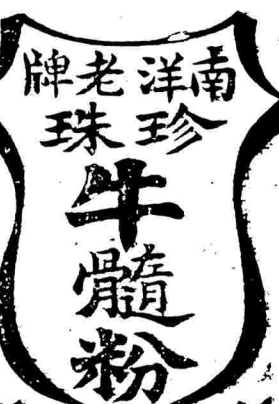 南洋老牌
珍珠
牛髓粉